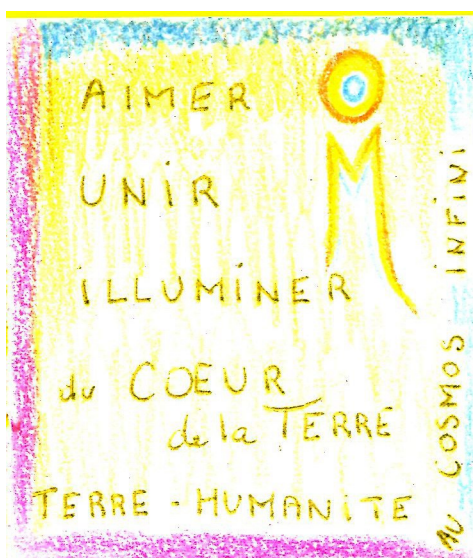 AIMER
UNIR
ILLUMINER
du COEUR
de la TERRE
TERRE - HUMANITE
AU COSMOS INFINI